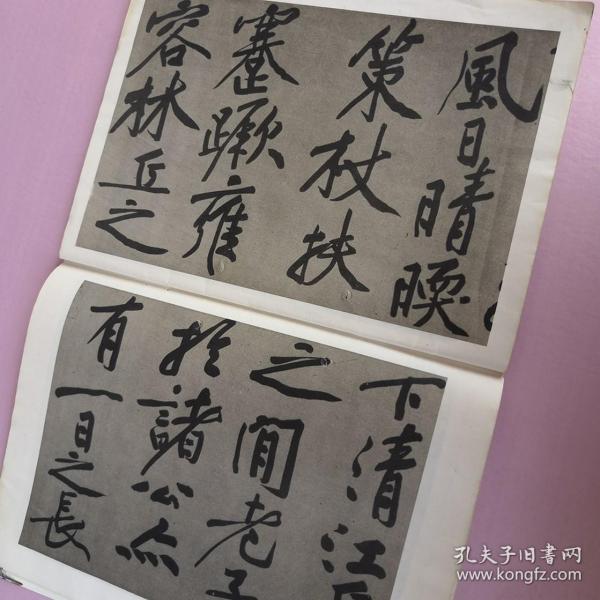 風日晴暖
策杖扶
蹇蹶雍
容林丘之
下清江
之間老子
於諸公亦
有一日之長
孔夫子旧书网
www.kongfz.com